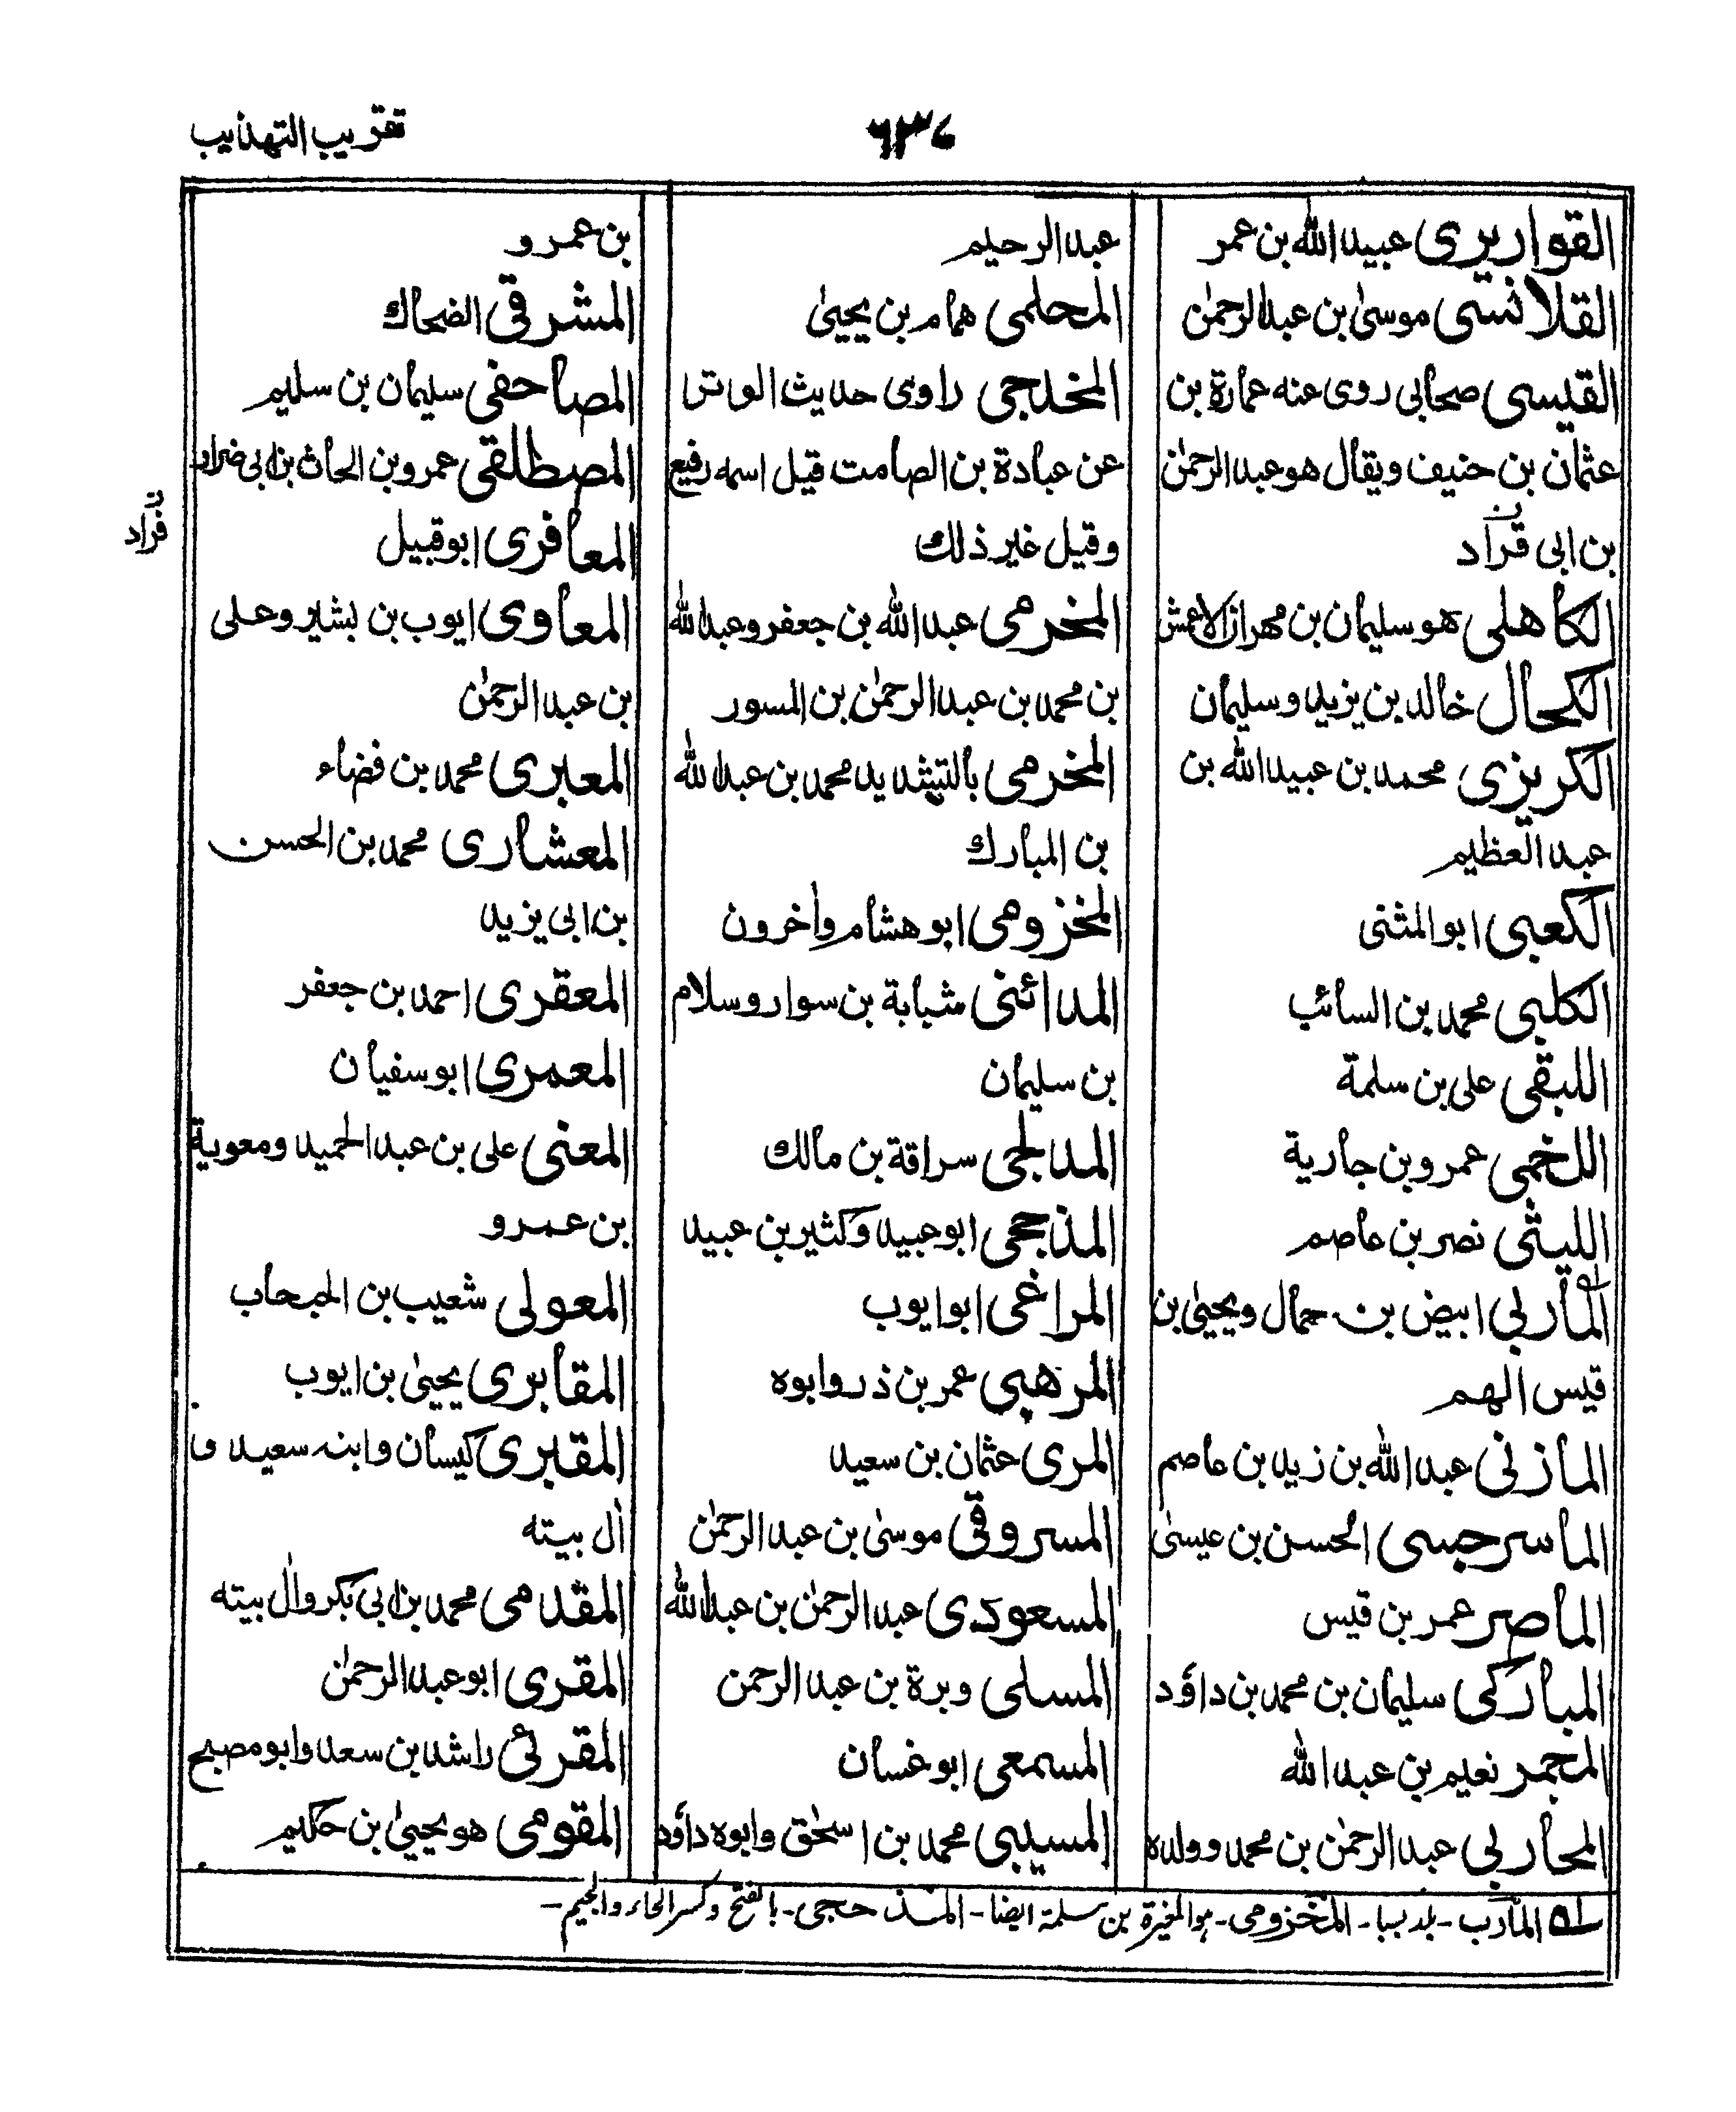 تقريب التهذيب
القواريرى عبيد الله بن عمر
القلانسى موسىٰ بن عبد الرحمٰن
القيسى صحابى روى عنه عمارة بن
عثمان بن حنيف ويقال هو عبد الرحمٰن
بن ابى قراد
الكاهلى هو سليمان بن مهران الاعمش
الكحال خالد بن يزيد وسليمان
الكريزى محمد بن عبيد الله بن
عبد العظيم
الكعبى ابو المثنى
الكلبى محمد بن السائب
اللبقى على بن سلمة
اللخمى عمرو بن جارية
الليثى نصر بن عاصم
المأربى ابيض بن حمال ويحيىٰ بن
قيس الهم
المازنى عبد الله بن زيد بن عاصم
الماسرجسى الحسن بن عيسىٰ
الماصر عمر بن قيس
المباركى سليمان بن محمد بن داؤد
المجمر نعيم بن عبد الله
المحاربى عبد الرحمٰن بن محمد وولده
عبد الرحيم
المحلمى همام بن يحيىٰ
المخدجى راوى حديث الوتر
عن عبادة بن الصامت قيل اسمه رفيع
وقيل غير ذلك
المخرمى عبد الله بن جعفر وعبد الله
بن محمد بن عبد الرحمٰن بن المسور
المخرمى بالتشديد محمد بن عبد الله
بن المبارك
المخزومى ابو هشام واٰخرون
المدائنى شبابة بن سوار وسلام
بن سليمان
المدلجى سراقة بن مالك
المذحجى ابو عبيد وكثير بن عبيد
المراغى ابو ايوب
المرهبى عمر بن ذر وابوه
المرى عثمان بن سعيد
المسروقى موسىٰ بن عبد الرحمٰن
المسعودى عبد الرحمٰن بن عبد الله
المسلى وبرة بن عبد الرحمن
المسمعى ابو غسان
المسيبى محمد بن اسحٰق وابوه داؤد
بن عمرو
المشرقى الضحاك
المصاحفى سليمان بن سليم
المصطلقى عمرو بن الحارث بن ابى ضرار
المعافرى ابو قبيل
المعاوى ايوب بن بشير وعلى
بن عبد الرحمٰن
المعبرى محمد بن فضاء
المعشارى محمد بن الحسن
بن ابى يزيد
المعقرى احمد بن جعفر
المعمرى ابو سفيان
المعنى على بن عبد الحميد ومعوية
بن عمرو
المعولى شعيب بن الحبحاب
المقابرى يحيىٰ بن ايوب
المقبرى كيسان وابنه سعيد و
اٰل بيته
المقدمى محمد بن ابى بكر واٰل بيته
المقرى ابو عبد الرحمٰن
المقرئى راشد بن سعد وابو مصبح
المقومى هو يحيىٰ بن حكيم
ن قراد
المأرب - بلد بسبا - المخزومى - هو المغيرة بن سلمة ايضا - المذحجى - بالفتح وكسر الحاء والجيم -